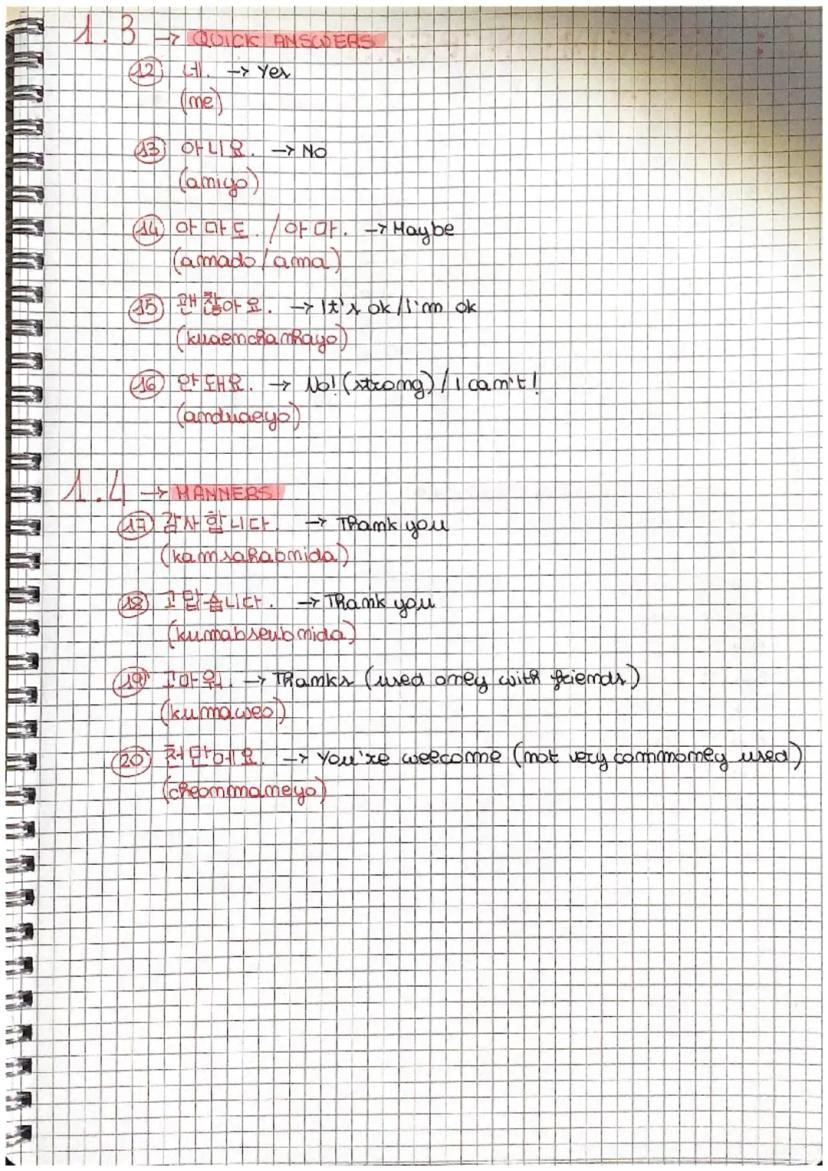 1.3 → QUICK ANSWERS
12 네. → Yes
(ne)
13 아니요. → No
(aniyo)
14 아마도. / 아마. → Maybe
(amado/ama)
15 괜찮아요. → It's ok/I'm ok
(kuaenchanhayo)
16 안 돼요. → No! (strong) / I can't!
(anduaeyo)
1.4 → MANNERS
17 감사합니다. → Thank you
(kamsahabnida)
18 고맙습니다. → Thank you
(kumabseubnida)
19 고마워. → Thanks (used only with friends)
(kumaweo)
20 천만에요. → You're welcome (not very commonly used)
(cheonmaneyo)